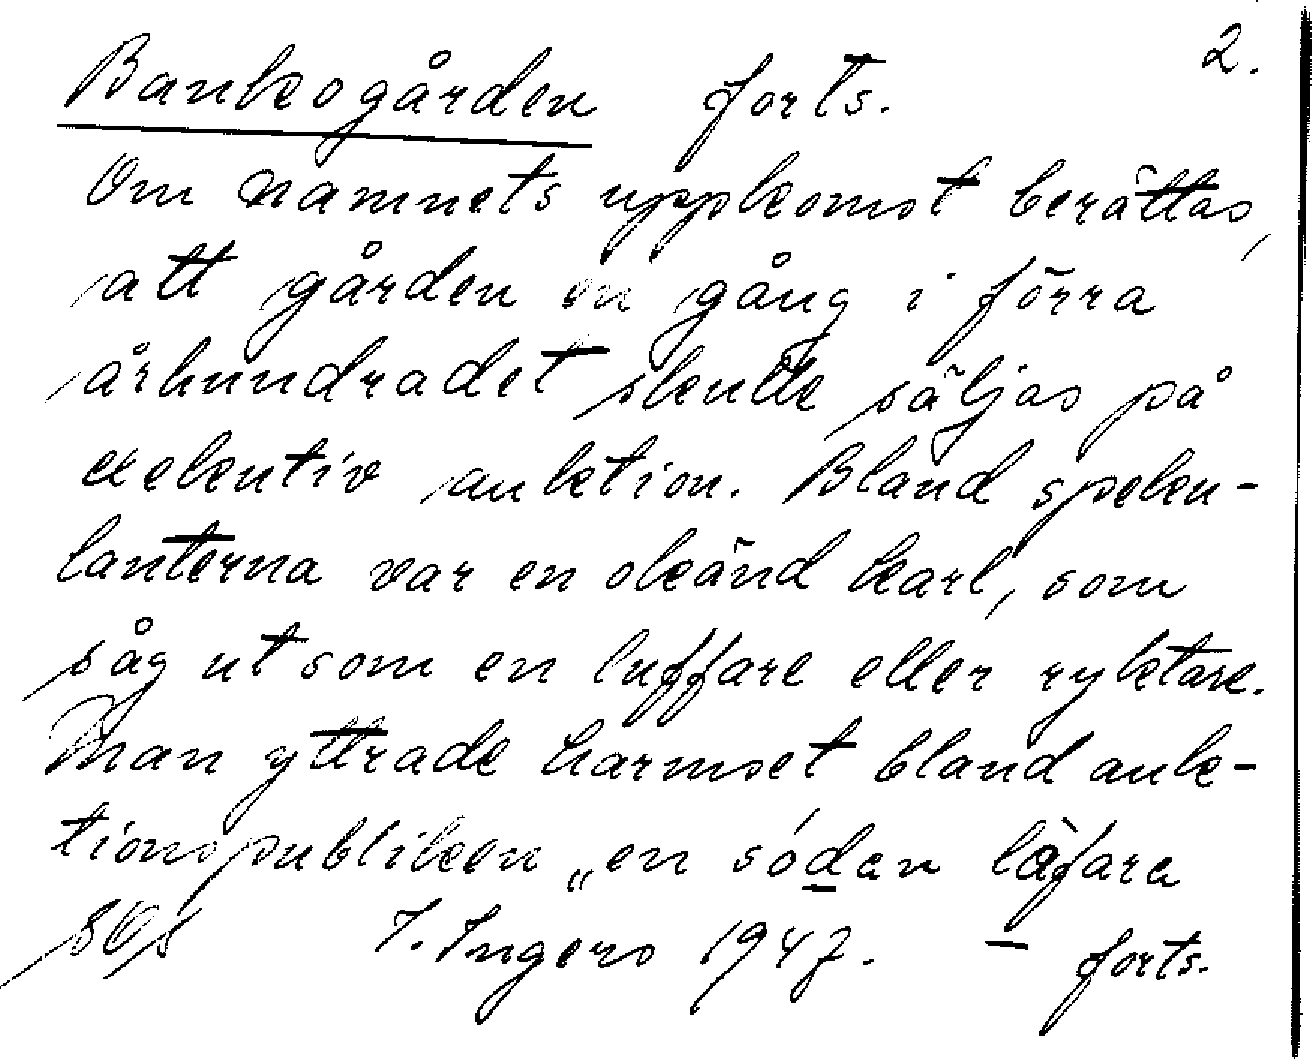 2.
Bankogården forts.
Om namnets uppkomst berättas,
att gården en gång i förra
århundradet skulle säljas på
exekutiv auktion. Bland speku-
lanterna var en okänd karl, som
såg ut som en luffare eller ryktare.
Man yttrade harmset bland auk-
tionspubliken „en sódan låfare
I. Ingers 1947. — forts.